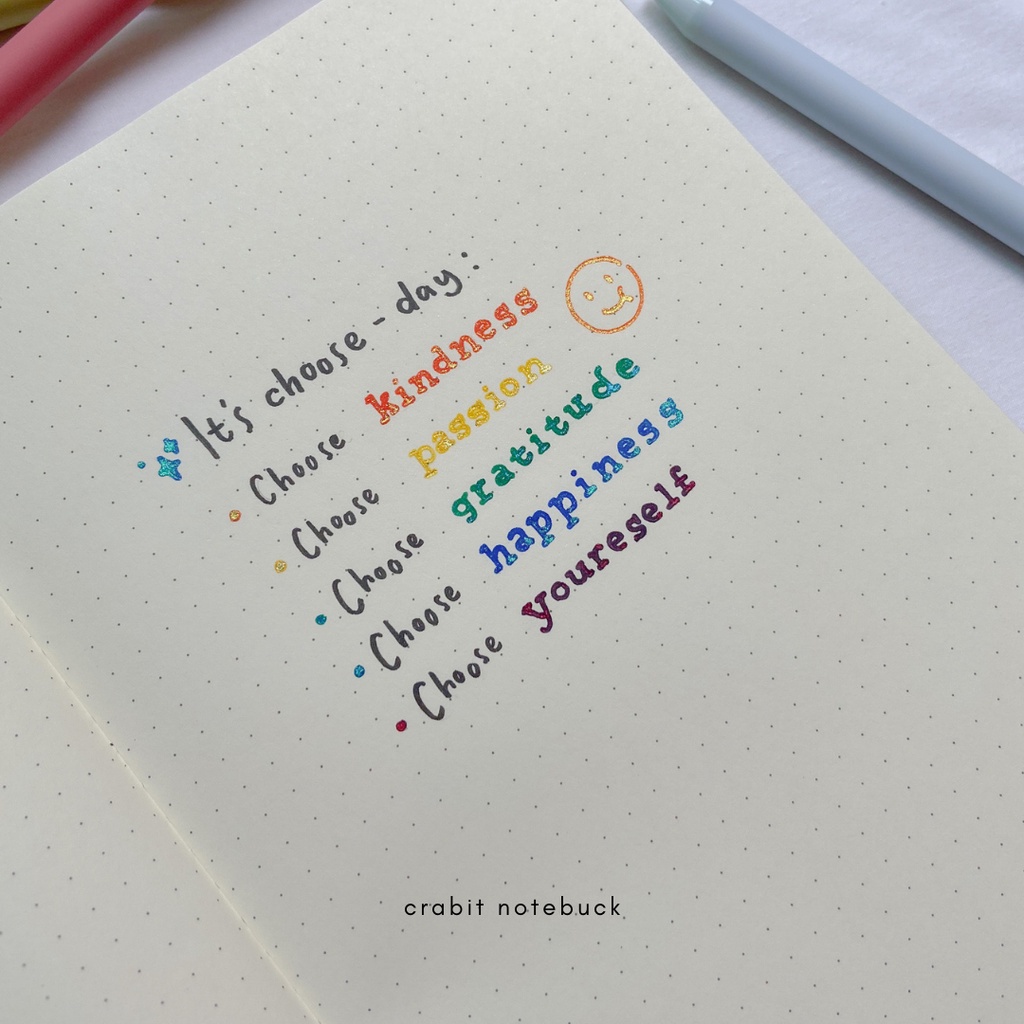 It's choose-day:
• Choose kindness
• Choose passion
• Choose gratitude
• Choose happiness
• Choose youreself
crabit notebuck